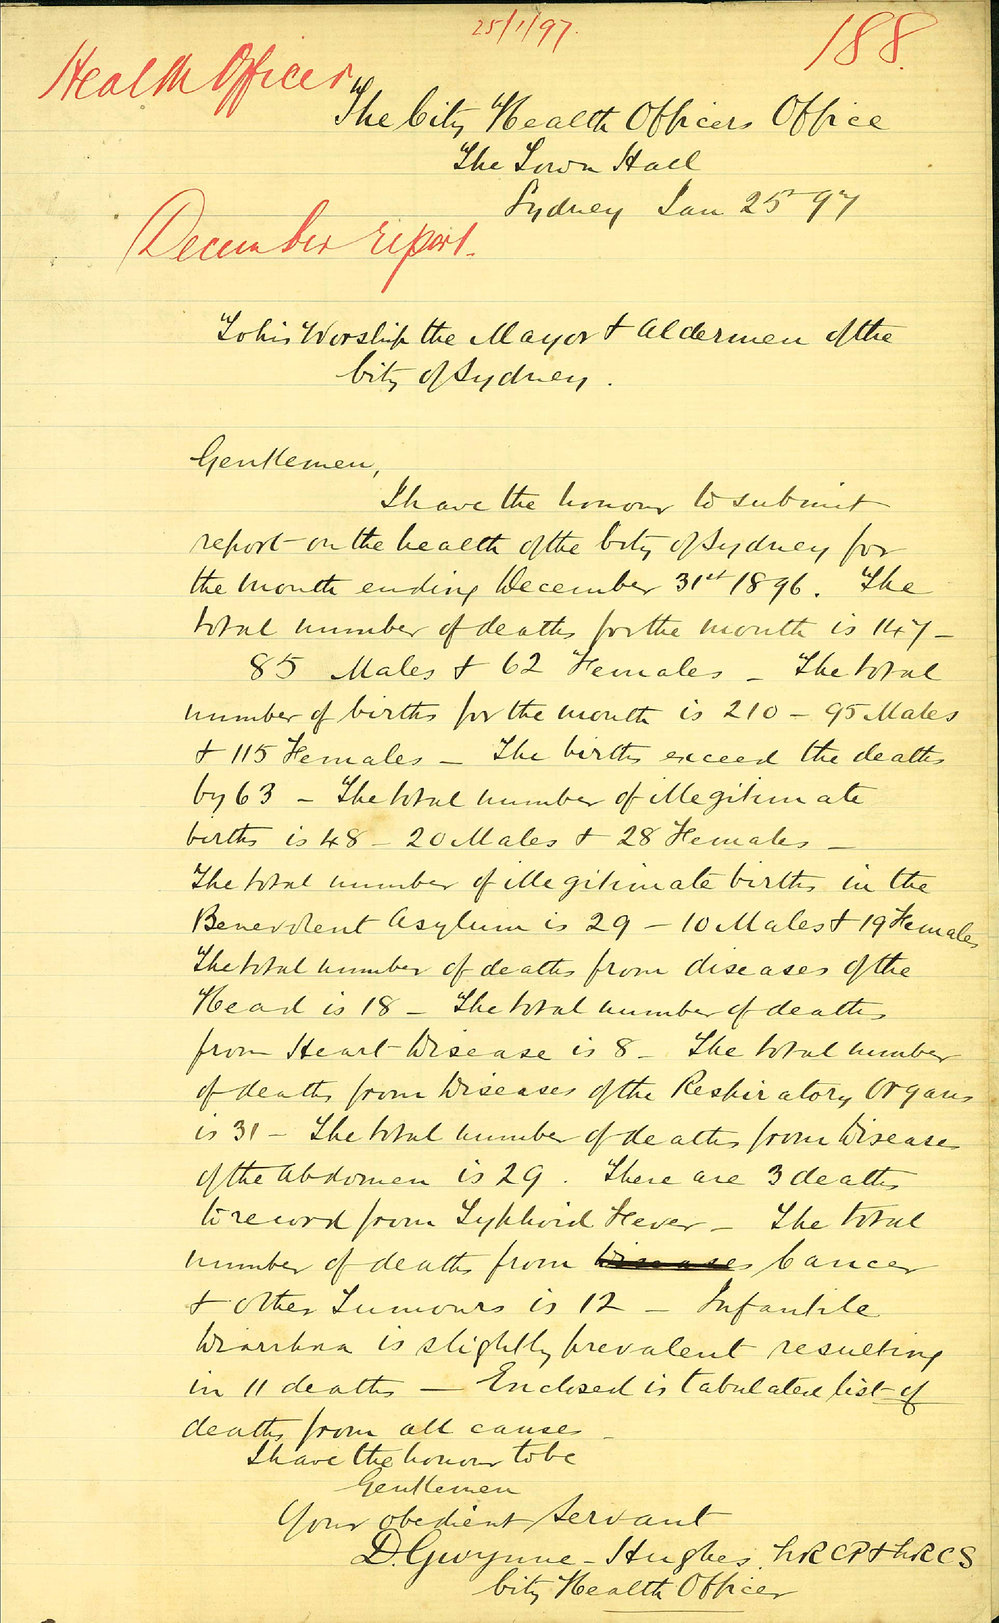 25/1/97.
188.
Health Officer
The City Health Officers Office
The Town Hall
Sydney Jan 25th 97
December report.
To his Worship the Mayor & Aldermen of the
City of Sydney.
Gentlemen,
I have the honour to submit
report on the health of the City of Sydney for
the month ending December 31st 1896. The
total number of deaths for the month is 147 –
85 Males & 62 Females – The total
number of births for the month is 210 – 95 Males
& 115 Females – The births exceed the deaths
by 63 – The total number of illegitimate
births is 48 – 20 Males & 28 Females –
The total number of illegitimate births in the
Benevolent Asylum is 29 – 10 Males & 19 Females
The total number of deaths from diseases of the
Head is 18 – The total number of deaths
from Heart Disease is 8 – The total number
of deaths from Diseases of the Respiratory Organs
is 31 – The total number of deaths from Diseases
of the Abdomen is 29. There are 3 deaths
to record from Typhoid Fever – The total
number of deaths from Diseases Cancer
& other Tumours is 12 – Infantile
Diarrhœa is slightly prevalent resulting
in 11 deaths – Enclosed is tabulated list of
deaths from all causes –
I have the honour to be
Gentlemen
Your obedient Servant
D. Gwynne-Hughes. LRCP & LRCS
City Health Officer